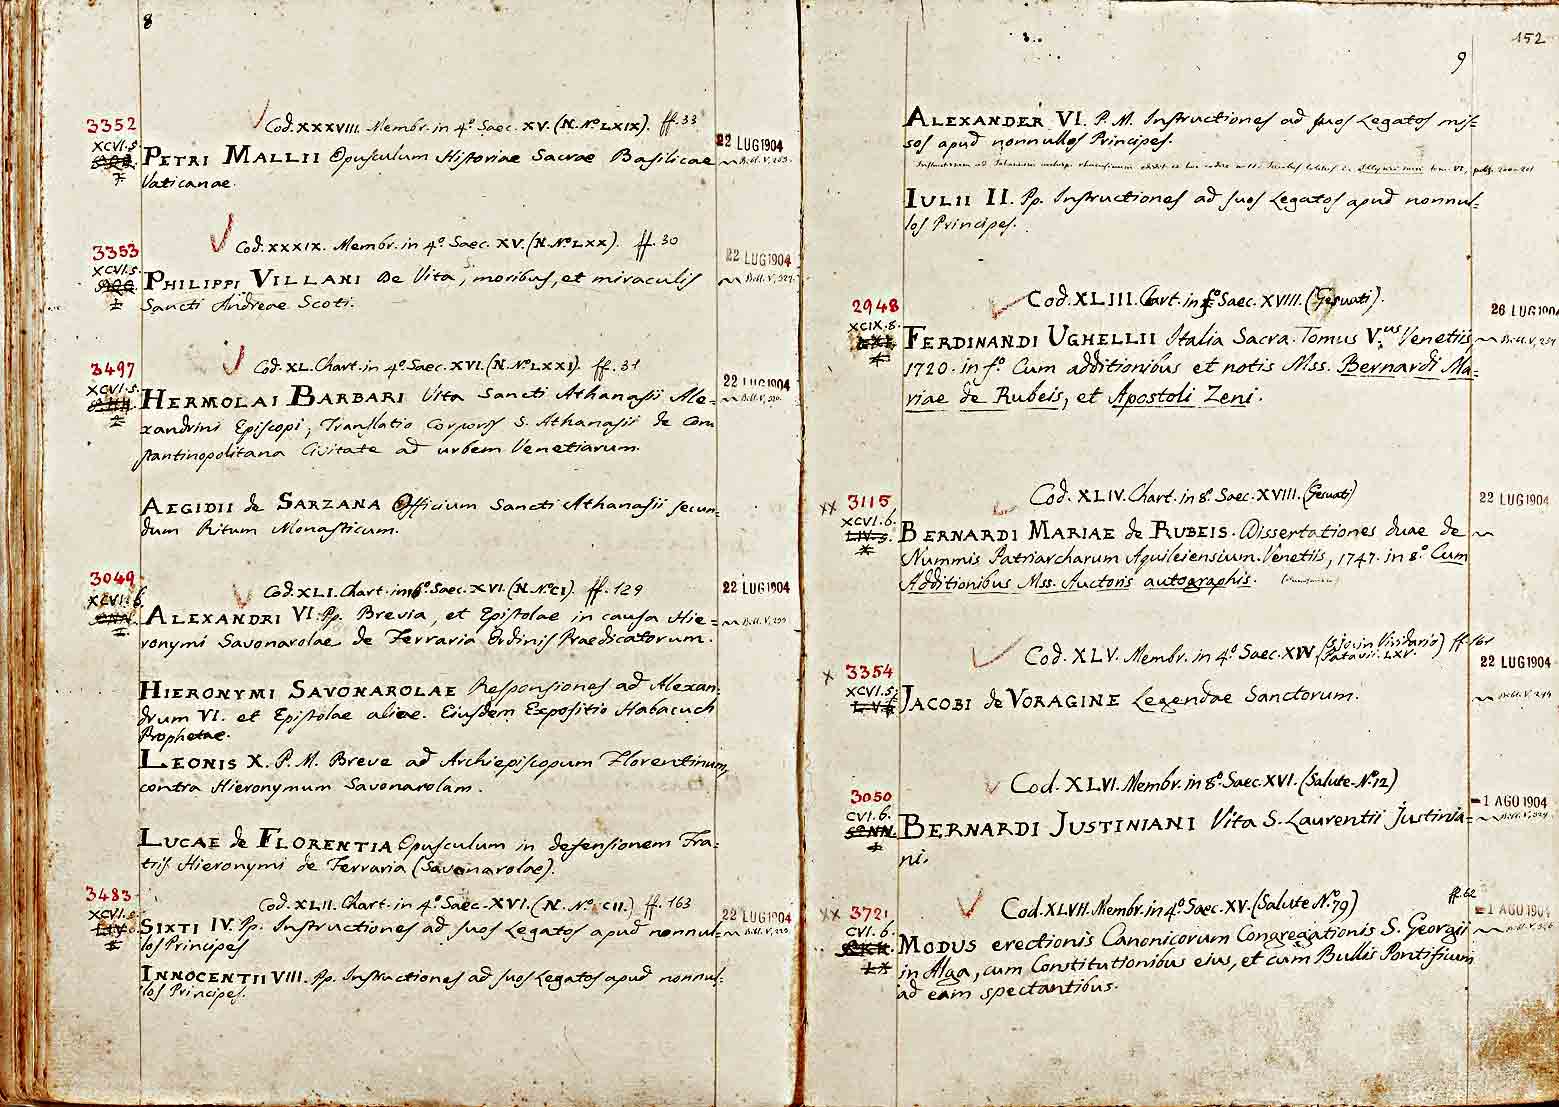 8
3352
Cod. XXXVIII. Membr. in 4.º Saec. XV. (N. Nº LXIX). ff. 33
XCVI.5
22 LUG 1904
PETRI MALLII Opusculum Historiae Sacrae Basilicae
Vaticanae.
3353
Cod. XXXIX. Membr. in 4.º Saec. XV. (N. Nº LXX). ff. 30
XCVI.5.
22 LUG 1904
PHILIPPI VILLANI De Vita, moribus, et miraculis
Sancti Andreae Scoti.
3497
Cod. XL. Chart. in 4.º Saec. XVI. (N. Nº LXXI). ff. 31
XCVI.5.
22 LUG 1904
HERMOLAI BARBARI Vita Sancti Athanasii Ale=
xandrini Episcopi; Translatio Corporis S. Athanasii de Con
stantinopolitana Civitate ad urbem Venetiarum.
AEGIDII de SARZANA Officium Sancti Athanasii secun=
dum Ritum Monasticum.
3049
Cod. XLI. Chart. in 6º Saec. XVI. (N. Nº CI). ff. 129
XCVII.6.
22 LUG 1904
ALEXANDRI VI. Pp. Brevia, et Epistolae in causa Hie=
ronymi Savonarolae de Ferraria Ordinis Praedicatorum.
HIERONYMI SAVONAROLAE Responsiones ad Alexan=
drum VI. et Epistolae aliae. Eiusdem Expositio Habacuch
Prophetae.
LEONIS X. P. M. Breve ad Archiepiscopum Florentinum,
contra Hieronymum Savonarolam.
LUCAE de FLORENTIA Opusculum in defensionem Fra=
tris Hieronymi de Ferraria (Savonarolae).
3483
Cod. XLII. Chart. in 4.º Saec. XVI. (N. Nº CII.) ff. 163
XCVI.5.
22 LUG 1904
SIXTI IV. Pp. Instructiones ad suos Legatos apud nonnul=
los Principes
INNOCENTII VIII. Pp. Instructiones ad suos Legatos apud nonnul=
los Principes.
152
9
ALEXANDER VI. P. M. Instructiones ad suos Legatos mis=
sos apud nonnullos Principes.
IULII II. Pp. Instructiones ad suos Legatos apud nonnul=
los Principes.
2948
Cod. XLIII. Chart. in fº Saec. XVIII. (Gesuati).
XCIX.8.
26 LUG 1904
FERDINANDI UGHELLII Italia Sacra. Tomus V.us Venetiis
1720. in fº. Cum additionibus et notis Mss. Bernardi Ma=
riae de Rubeis, et Apostoli Zeni.
xx 3115
Cod. XLIV. Chart. in 8.º Saec. XVIII. (Gesuati)
22 LUG 1904
XCVI.6.
BERNARDI MARIAE de RUBEIS. Dissertationes duae de
Nummis Patriarcharum Aquileiensium. Venetiis, 1747. in 8.º Cum
Additionibus Mss. Auctoris autographis.
x 3354
Cod. XLV. Membr. in 4.º Saec. XIV (S. Jo: in Viridario Patavii. LXV.) ff. 161
22 LUG 1904
XCVI.5.
JACOBI de VORAGINE Legendae Sanctorum.
3050
Cod. XLVI. Membr. in 8.º Saec. XVI. (Salute. Nº 12)
CVI.6.
-1 AGO 1904
BERNARDI JUSTINIANI Vita S. Laurentii Justinia=
ni.
ff. 62
xx 3721
Cod. XLVII. Membr. in 4.º Saec. XV. (Salute Nº 79)
CVI.6.
-1 AGO 1904
MODUS erectionis Canonicorum Congregationis S. Georgii
in Alga, cum Constitutionibus eius, et cum Bullis Pontificum
ad eam spectantibus.